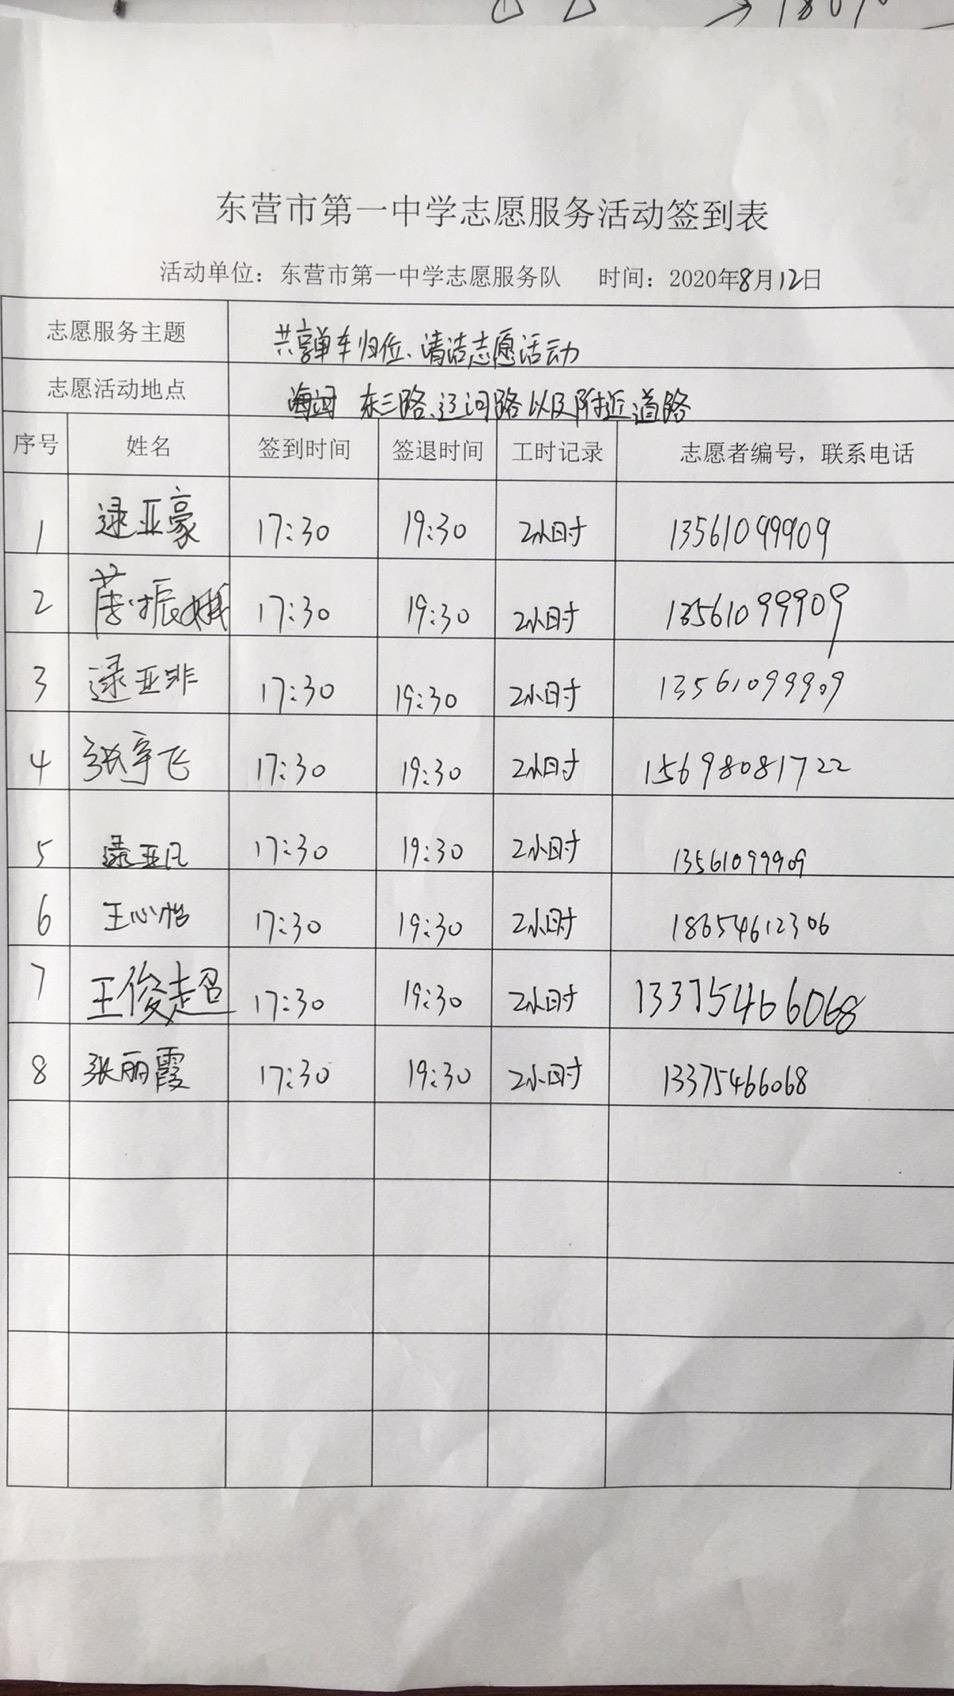 东营市第一中学志愿服务活动签到表
活动单位：东营市第一中学志愿服务队 时间：2020年8月12日
志愿服务主题 共享单车归位、清洁志愿活动
志愿活动地点 东三路、辽河路以及附近道路
序号 姓名 签到时间 签退时间 工时记录 志愿者编号，联系电话
1 逯亚豪 17:30 19:30 2小时 13561099909
2 振娥 17:30 19:30 2小时 13561099909
3 逯亚非 17:30 19:30 2小时 13561099909
4 张宇飞 17:30 19:30 2小时 15698081722
5 逯亚凡 17:30 19:30 2小时 13561099909
6 王心怡 17:30 19:30 2小时 18654612306
7 王俊超 17:30 19:30 2小时 13375466068
8 张丽霞 17:30 19:30 2小时 13375466068